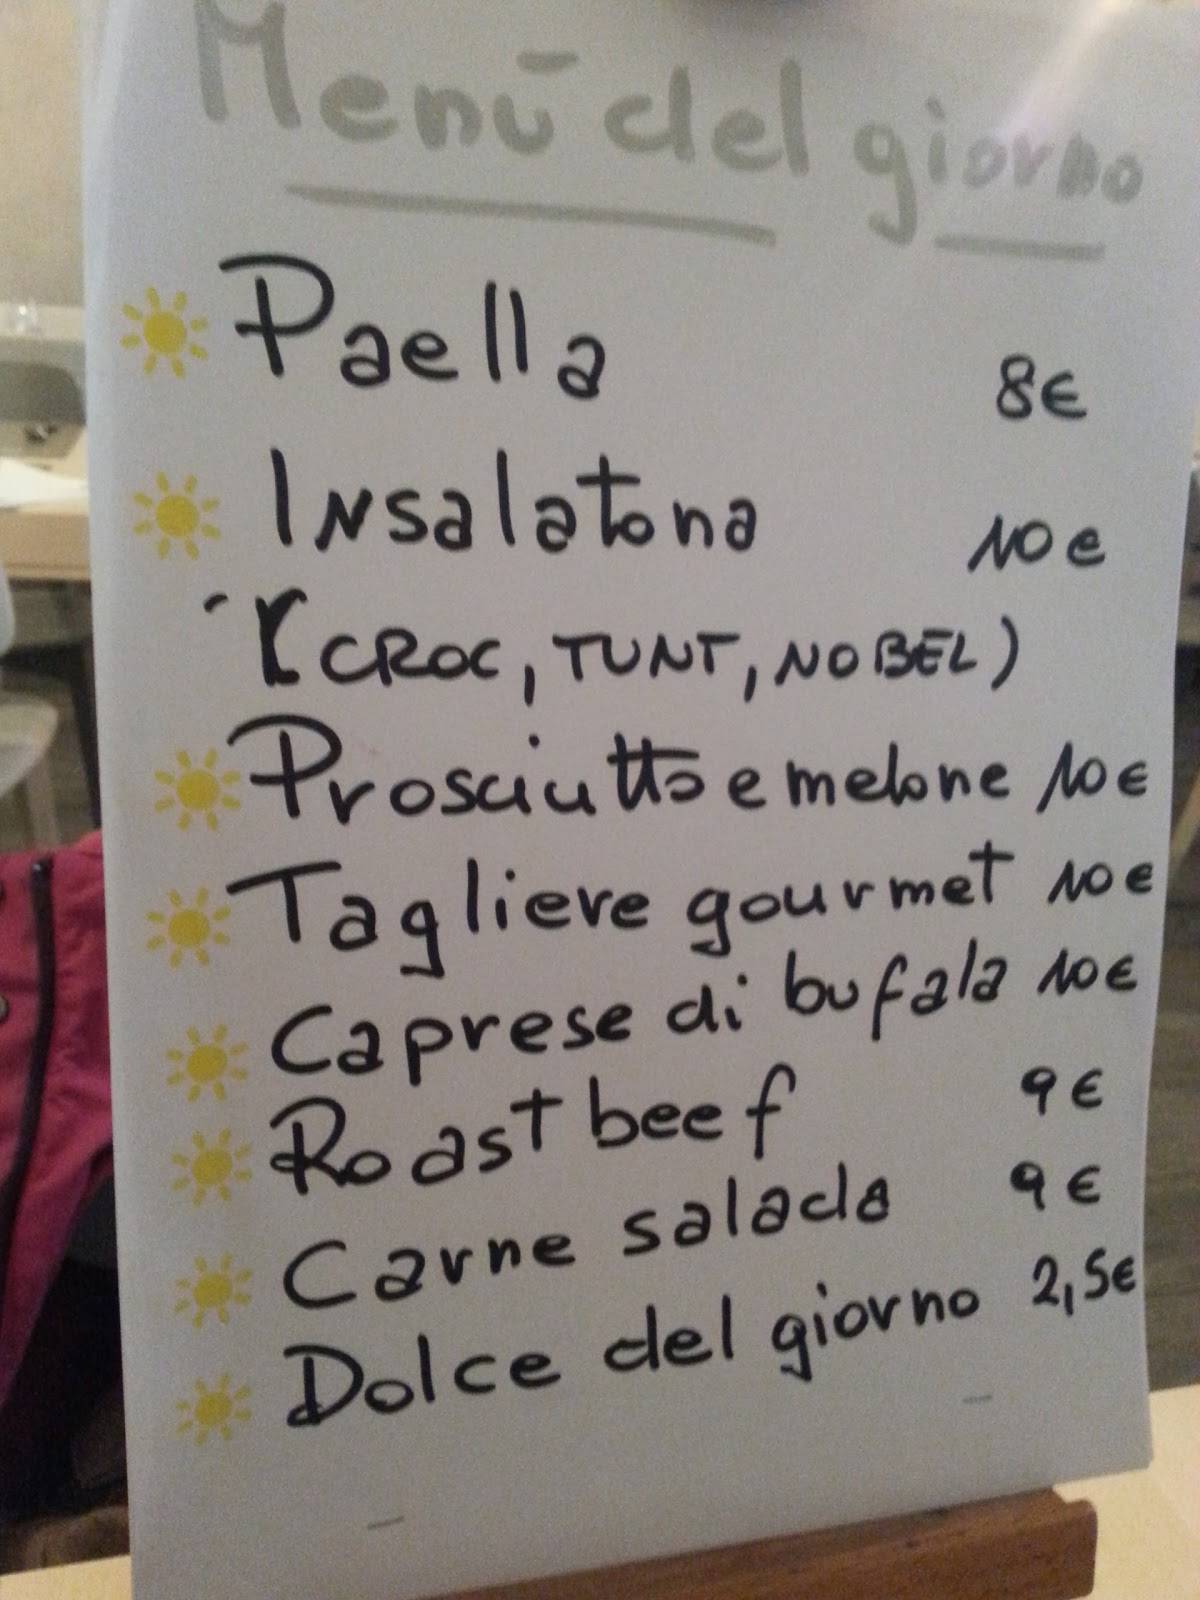 Menū del giorno
Paella 8€
Insalatona 10€
(CROC, TUNT, NOBEL)
Prosciutto e melone 10€
Tagliere gourmet 10€
Caprese di bufala 10€
Roast beef 9€
Carne salada 9€
Dolce del giorno 2,5€